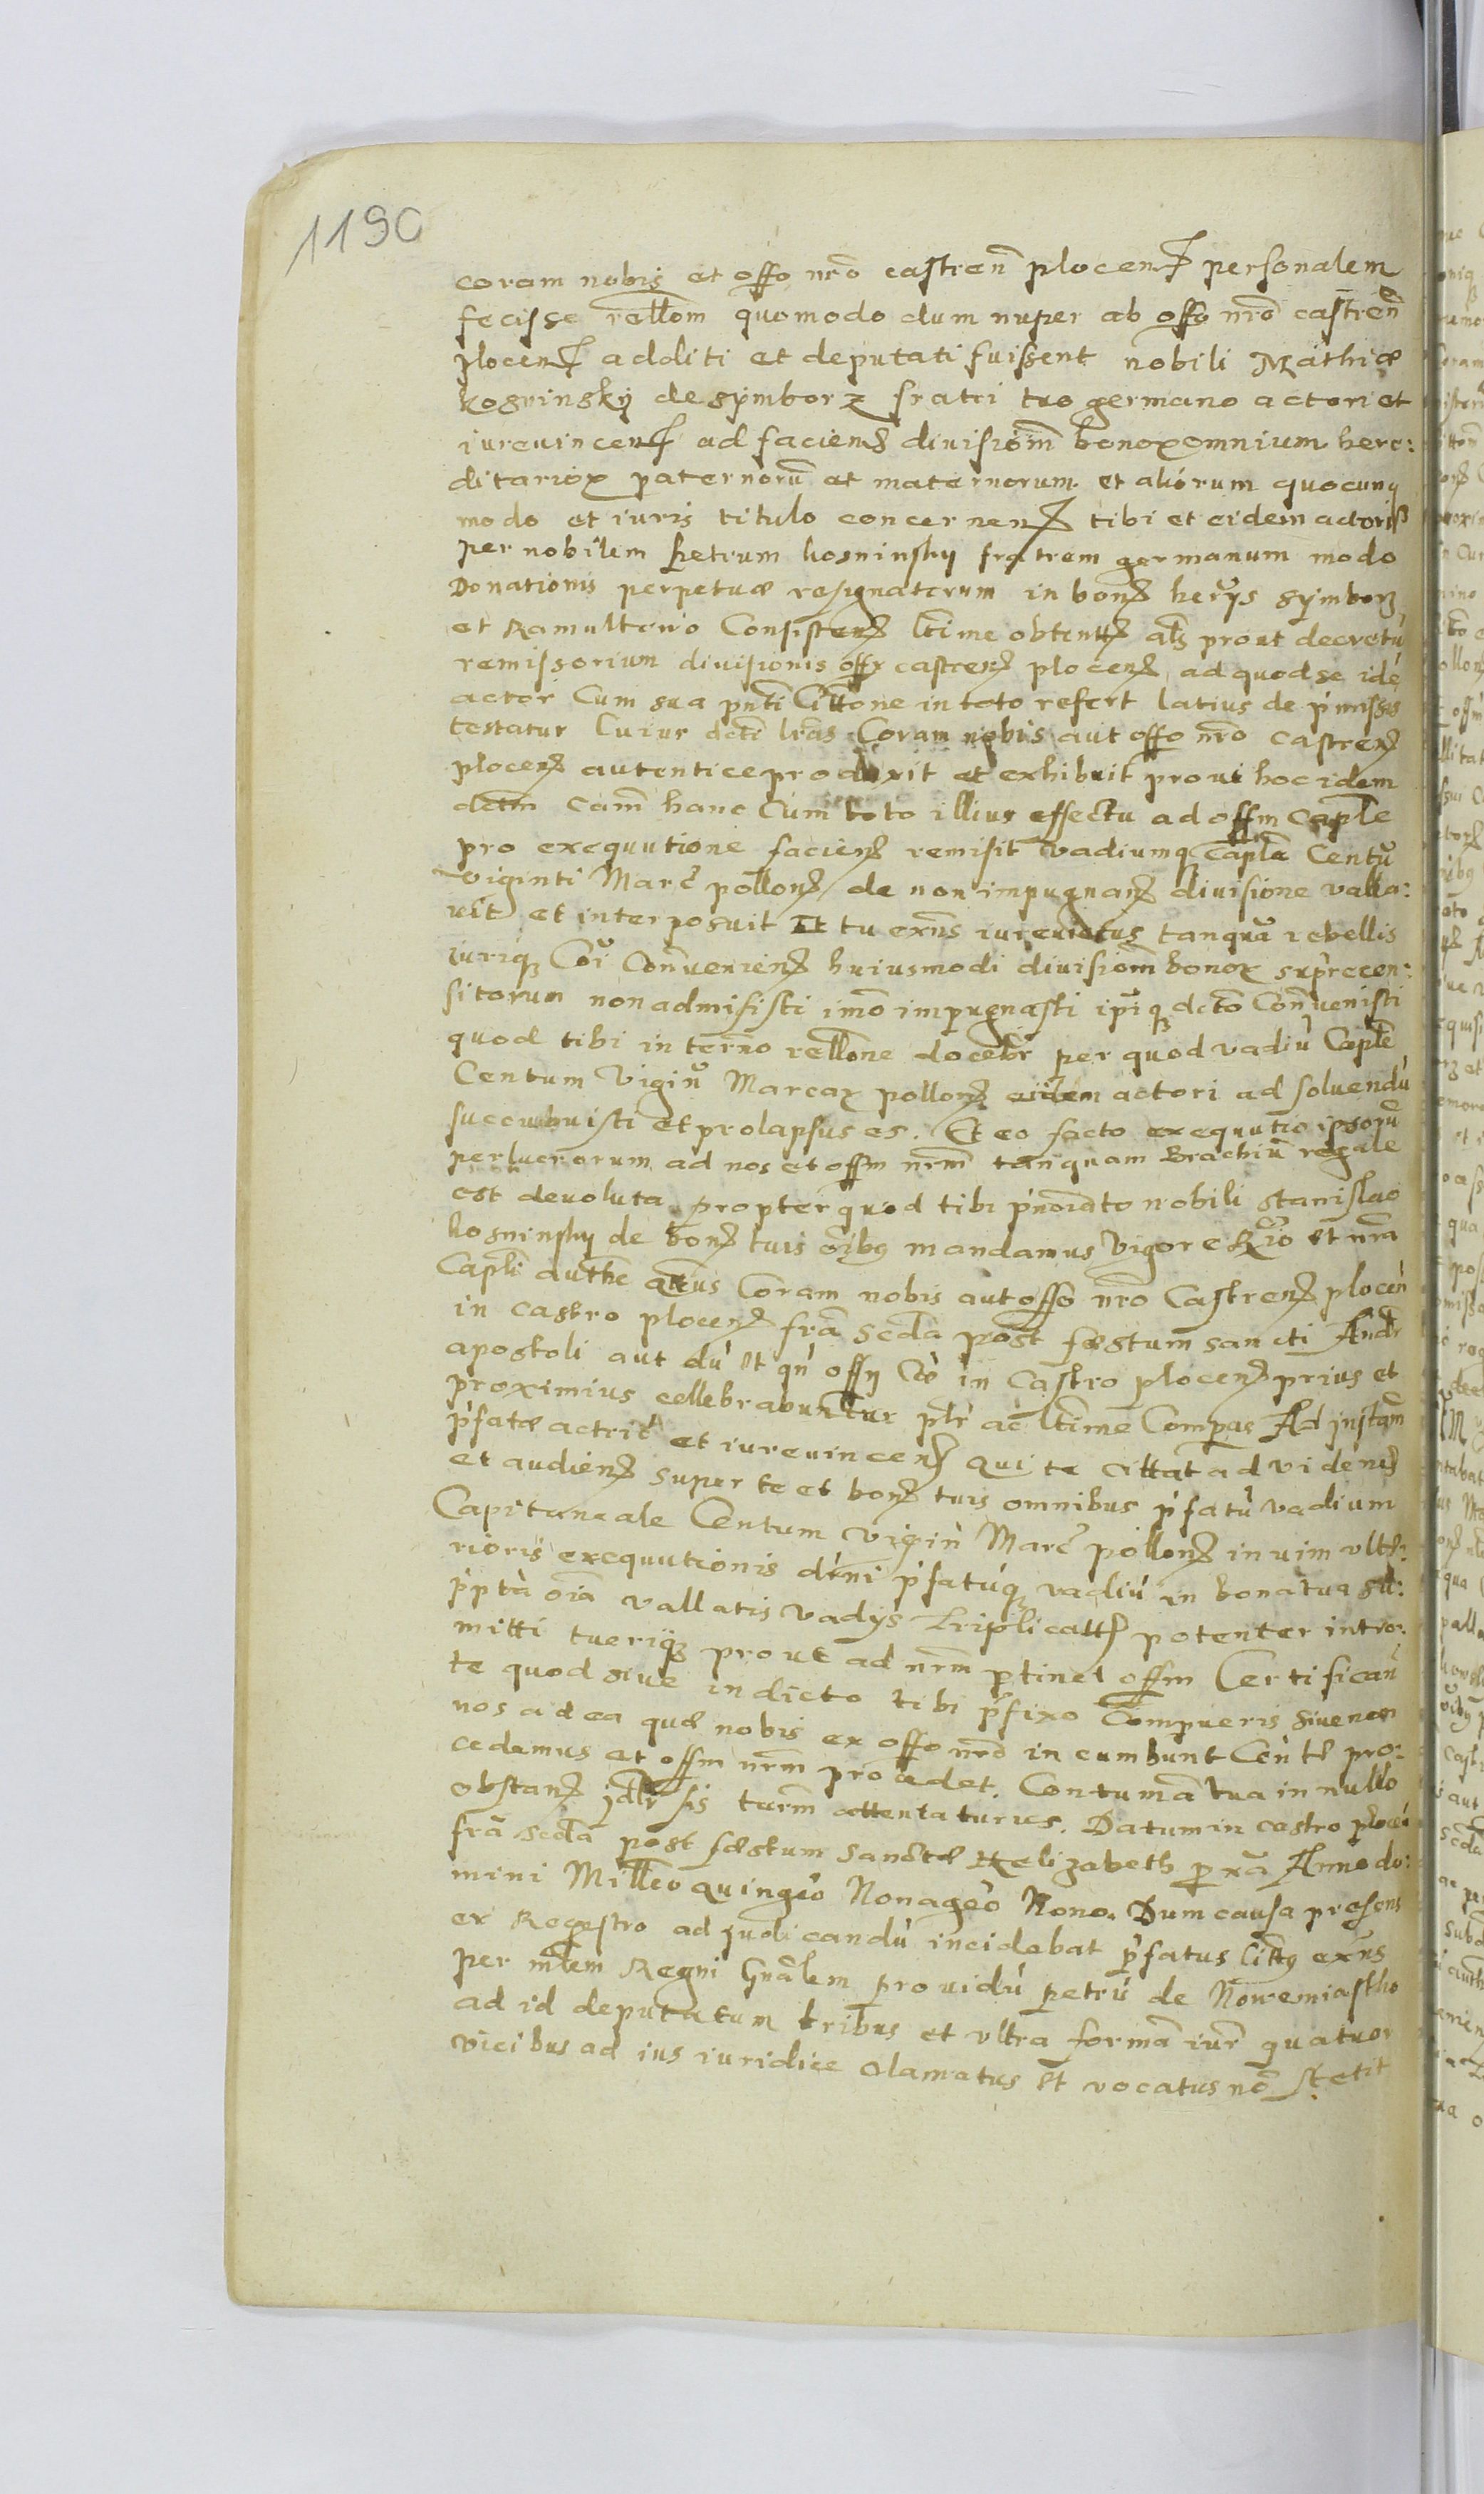 1190
coram nobis et offo nro castren plocen personalem
fecisse rellom quomodo dum nuper ab offo nro castren
plocen additi et deputati fuissent nobili Mathiæ
kosninsky de symborz fratri tuo germano actori et
iureuincen ad faciend diuisiom bonor omnium here:
ditarior paternorum et maternorum et aliorum quocunq
modo et iuris titulo concernen tibi et eidem actori
per nobilem petrum kosninsky fratrem germanum modo
Donationis perpetuæ resignatorum in bonis herys symborz
et Ramultowo Consisten ltime obtentis als prout decretu
remissorium diuisionis offy castren plocen ad quod se ide
actor Cum sua pnti Cittone in toto refert latius de pmissis
testatur Cuius dcti lras Coram nobis aut offo nro castren
plocen autentice produxit et exhibuit prout hoc idem
dctm cam hanc Cum toto illius effectu ad offm Caple
pro exequutione faciend remisit vadiumq caple Centu
viginti Marc pollon de non impugnand diuisione valla:
uit et interposuit Et tu exns iureuictus tanqua rebellis
iuriq Coi Conueniens huiusmodi diuisiom bonor suprecen:
sitorum non admisisti imo impugnasti ipiq dcto Conuenisti
quod tibi in termo rellone docebr per quod vadiu Caple
Centum viginti Marcar pollon eidem actori ad soluendu
succubuisti et prolapsus es. Et eo facto exequutio ipsoru
perlucrorum ad nos et offm nrm tanquam Brachiu regale
est deuoluta propter quod tibi pnoiato nobili stanislao
kosninsky de bonis tuis oibus mandamus vigore Rio et nra
Capli authe qttus Coram nobis aut offo nro Castren plocen
in castro plocen fra scda post festum sancti Andr
apostoli aut du et qn offy in Castro plocen prius et
proximius cellebrabuntur ptr ac ltime Compas Ad instam
pfatæ actric et iureuincen qui te cittat ad vidend
et audiend super te et bonis tuis omnibus pfatu vadium
Capitaneale Centum vigin Marc pollon in uim vlte:
rioris exequutionis pfatuq vadiu in bona tua
ppta oia vallatis vadys triplicatis potenter intro:
mitti tueriq prout ad nrm ptinet offm Certifican
te quod siue in dicto tibi pfixo Comperueris siue non
nos ad ea quæ nobis ex offo nro incumbunt pro:
cedemus et offm nrm procedet. Contuma tua in nullo
obstan sis term attentaturus. Datum in castro plocen
fra scda post festum Sanctæ elizabeth pxa Anno do:
mini Milleo quingeo Nonageo Nono. Dum causa presens
ex Regestro ad judicandu incidebat pfatus Cittus exns
per mlem Regni Gnalem prouidu petru de Nowemiastho
ad id deputatum tribus et vltra forma iur quatuor
vicibus ad ius iuridice clamatus et vocatus no stetit